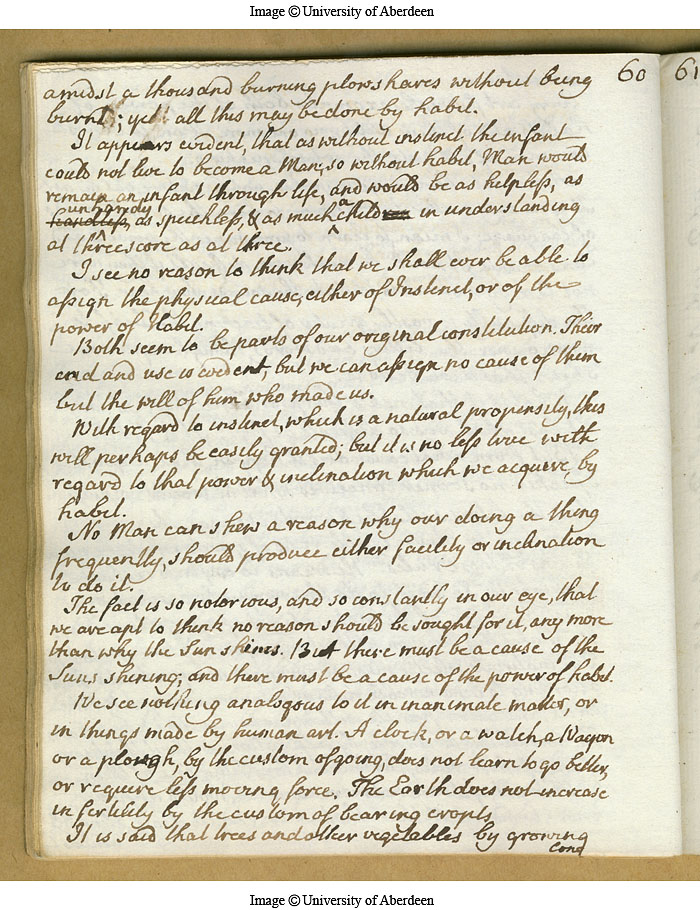 Image © University of Aberdeen
60
61
amidst a thousand burning plowshares without being
burnt; yet all this may be done by habit.
It appears evident, that as without instinct the infant
could not live to become a Man, so without habit, Man would
remain an infant through life, and would be as helpless, as
unhandy
handless, as speechless, & as much a child in understanding
at threescore as at three.
I see no reason to think that we shall ever be able to
assign the physical cause, either of Instinct, or of the
power of Habit.
Both seem to be parts of our original constitution. Their
end and use is evident, but we can assign no cause of them
but the will of him who made us.
With regard to instinct, which is a natural propensity, this
will perhaps be easily granted; but it is no less true with
regard to that power & inclination which we acquire, by
habit.
No Man can shew a reason why our doing a thing
frequently, should produce either facility or inclination
to do it.
The fact is so notorious, and so constantly in our eye, that
we are apt to think no reason should be sought for it, any more
than why the Sun shines. But there must be a cause of the
Suns shining, and there must be a cause of the power of habit.
We see nothing analogous to it in inanimate matter, or
in things made by human art. A clock, or a watch, a Wagon
or a plough, by the custom of going, does not learn to go better,
or require less moving force. The Earth does not increase
in fertility by the custom of bearing cropts
It is said that trees and other vegetables by growing
long
Image © University of Aberdeen